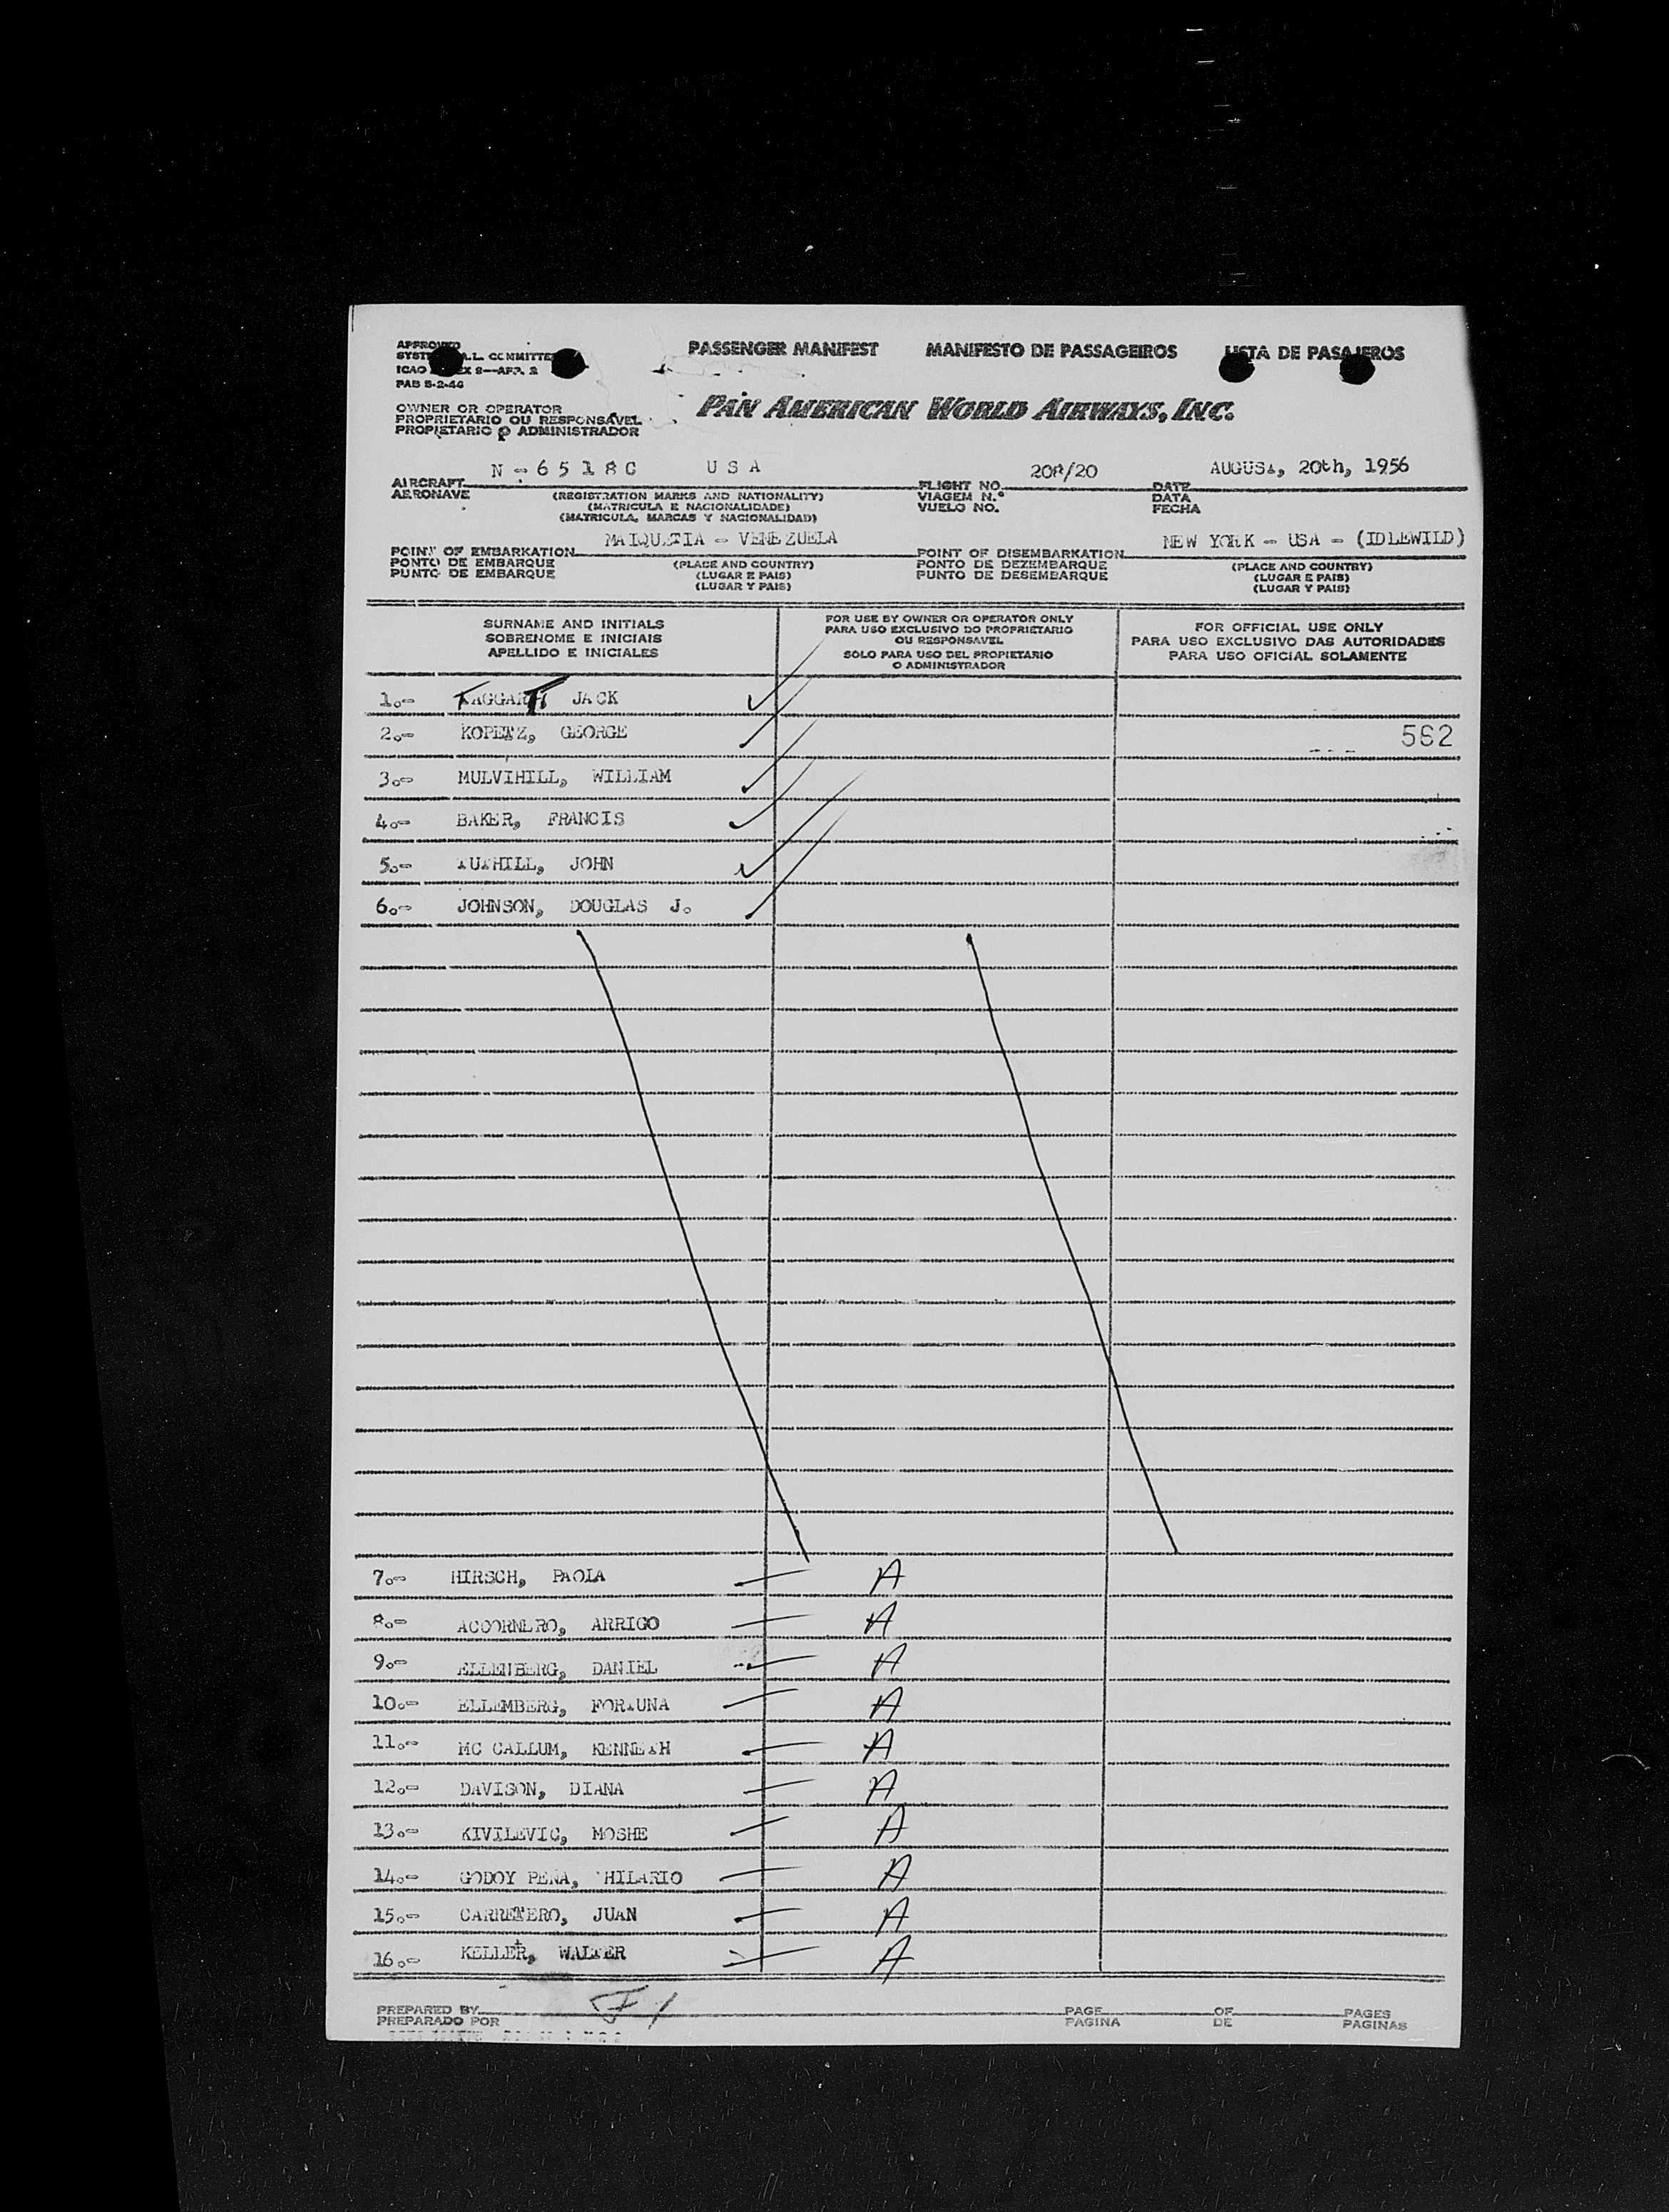 PASSENGER MANIFEST MANIFESTO DE PASSAGEIROS LISTA DE PASAJEROS
APPROVED
ICAO
PAB 5-2-46
OWNER OR OPERATOR
PROPRIETARIO OU RESPONSAVEL
PROPIETARIO O ADMINISTRADOR
PAN AMERICAN WORLD AIRWAYS, INC.
N-6518C USA 208/20 AUGUST, 20th, 1956
AIRCRAFT FLIGHT NO. DATE
AERONAVE (REGISTRATION MARKS AND NATIONALITY) VIAGEM N.º DATA
(MATRICULA E NACIONALIDADE) VUELO NO. FECHA
(MATRICULA, MARCAS Y NACIONALIDAD)
MAIQUETIA - VENEZUELA NEW YORK - USA - (IDLEWILD)
POINT OF EMBARKATION POINT OF DISEMBARKATION
PONTO DE EMBARQUE (PLACE AND COUNTRY) PONTO DE DEZEMBARQUE (PLACE AND COUNTRY)
PUNTO DE EMBARQUE (LUGAR E PAIS) PUNTO DE DESEMBARQUE (LUGAR E PAIS)
(LUGAR Y PAIS) (LUGAR Y PAIS)
SURNAME AND INITIALS
SOBRENOME E INICIAIS
APELLIDO E INICIALES
FOR USE BY OWNER OR OPERATOR ONLY
PARA USO EXCLUSIVO DO PROPRIETARIO
OU RESPONSAVEL
SOLO PARA USO DEL PROPIETARIO
O ADMINISTRADOR
FOR OFFICIAL USE ONLY
PARA USO EXCLUSIVO DAS AUTORIDADES
PARA USO OFICIAL SOLAMENTE
1.- TAGGART JACK
2.- KOPETZ, GEORGE 562
3.- MULVIHILL, WILLIAM
4.- BAKER, FRANCIS
5.- TUTHILL, JOHN
6.- JOHNSON, DOUGLAS J.
7.- HIRSCH, PAOLA A
8.- ACCORNERO, ARRIGO A
9.- ELLENBERG, DANIEL A
10.- ELLEMBERG, FORTUNA A
11.- MC CALLUM, KENNETH A
12.- DAVISON, DIANA A
13.- KIVILEVIC, MOSHE A
14.- GODOY PENA, HILARIO A
15.- CARRETERO, JUAN A
16.- KELLER, WALTER A
PREPARED BY PAGE OF PAGES
PREPARADO POR PAGINA DE PAGINAS